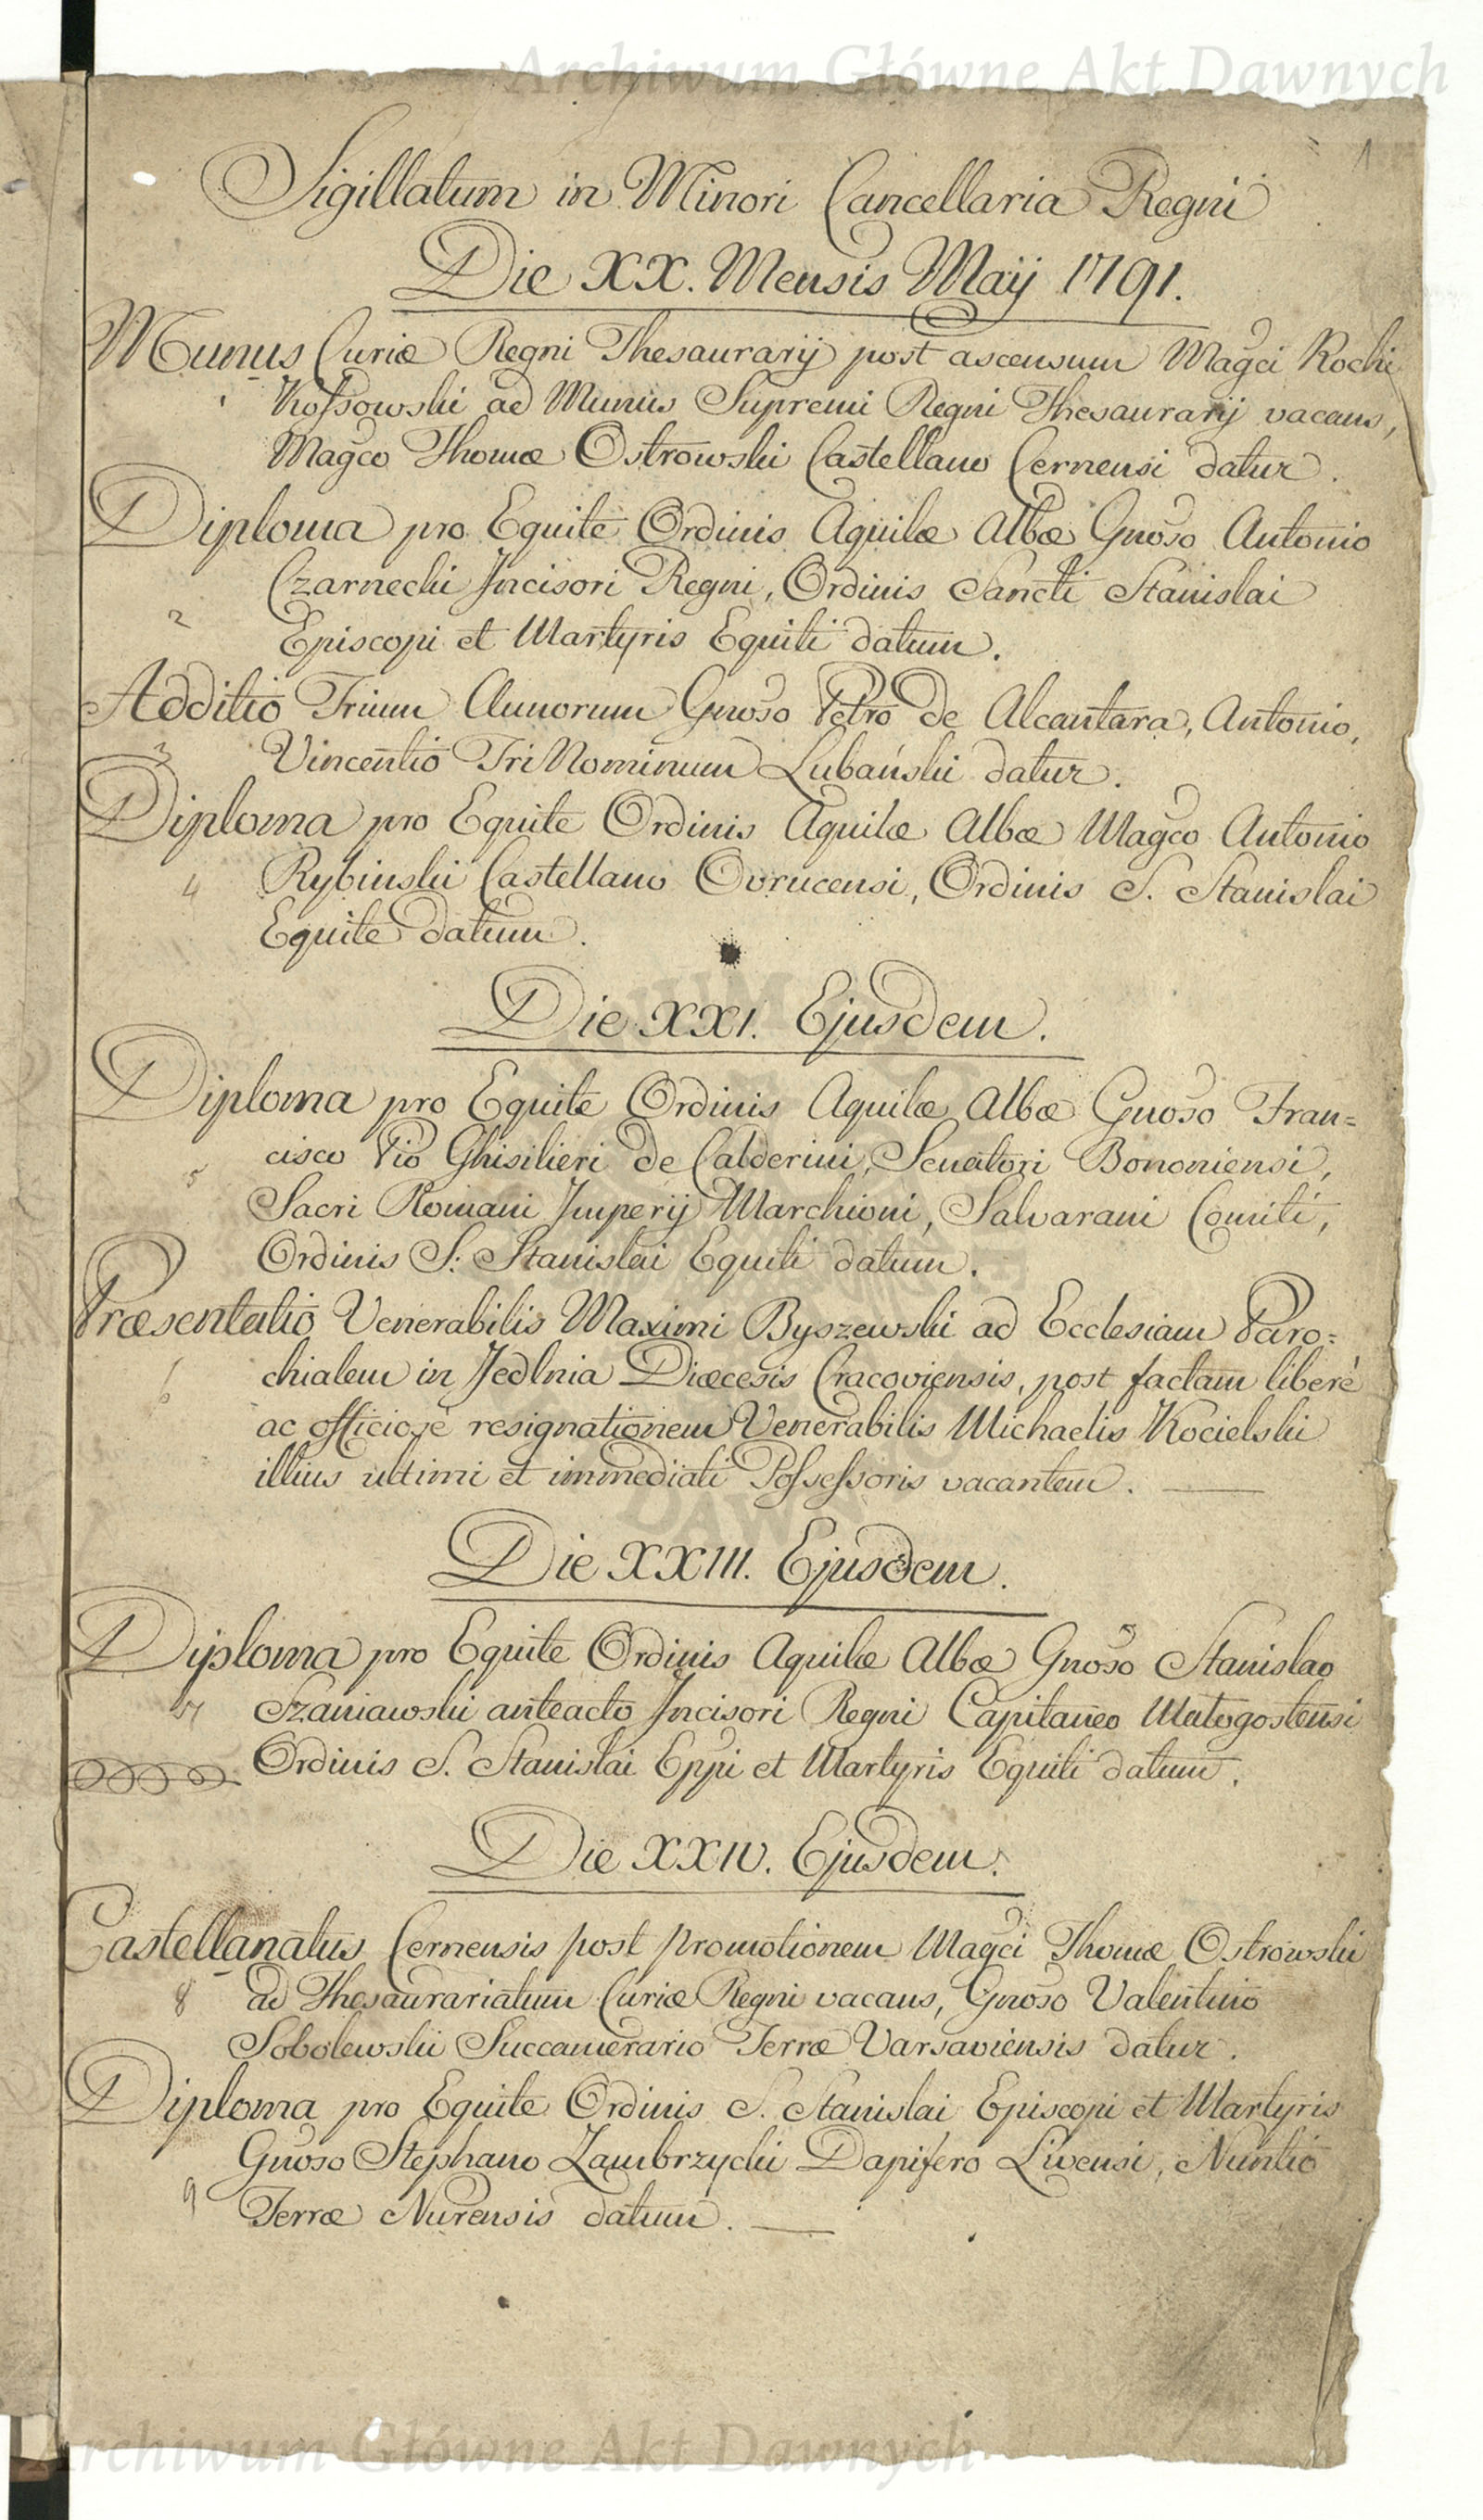 Archiwum Główne Akt Dawnych
1
Sigillatum in Minori Cancellaria Regni
Die XX. Mensis Maij 1791.
Munus Curiæ Regni Thesaurarij post ascensum Magci Rochi
1 Kossowski ad Munus Supremi Regni Thesaurarij vacans,
Magco Thomæ Ostrowski Castellano Cernensi datur.
Diploma pro Equite Ordinis Aquilæ Albæ Gnoso Antonio
Czarnecki Incisori Regni, Ordinis Sancti Stanislai
2 Episcopi et Martyris Equiti datum.
Additio Trium Annorum Gnoso Petro de Alcantara, Antonio,
3 Vincentio Tri Nominum Lubański datur.
Diploma pro Equite Ordinis Aquilæ Albæ Magco Antonio
4 Rybinski Castellano Ovrucensi, Ordinis S. Stanislai
Equite datum.
Die XXI. Ejusdem.
Diploma pro Equite Ordinis Aquilæ Albæ Gnoso Fran=
5 cisco Pio Ghisilieri de Calderini, Senatori Bononiensi,
Sacri Romani Imperij Marchioni, Salvarani Comiti,
Ordinis S. Stanislai Equiti datum.
Præsentatio Venerabilis Maximi Byszewski ad Ecclesiam Paro=
6 chialem in Jedlnia Diæcesis Cracoviensis, post factam liberè
ac officiosè resignationem Venerabilis Michaelis Kocielski
illius ultimi et immediati Possessoris vacantem.
Die XXIII. Ejusdem.
Diploma pro Equite Ordinis Aquilæ Albæ Gnoso Stanislao
7 Szaniawski anteacto Incisori Regni Capitaneo Małogostensi
Ordinis S. Stanislai Eppi et Martyris Equiti datum.
Die XXIV. Ejusdem.
Castellanatus Cernensis post promotionem Magci Thomæ Ostrowski
8 ad Thesaurariatum Curiæ Regni vacans, Gnoso Valentino
Sobolewski Succamerario Terræ Varsaviensis datur.
Diploma pro Equite Ordinis S. Stanislai Episcopi et Martyris
Gnoso Stephano Zambrzycki Dapifero Livensi, Nuntio
9 Terræ Nurensis datum.
Archiwum Główne Akt Dawnych